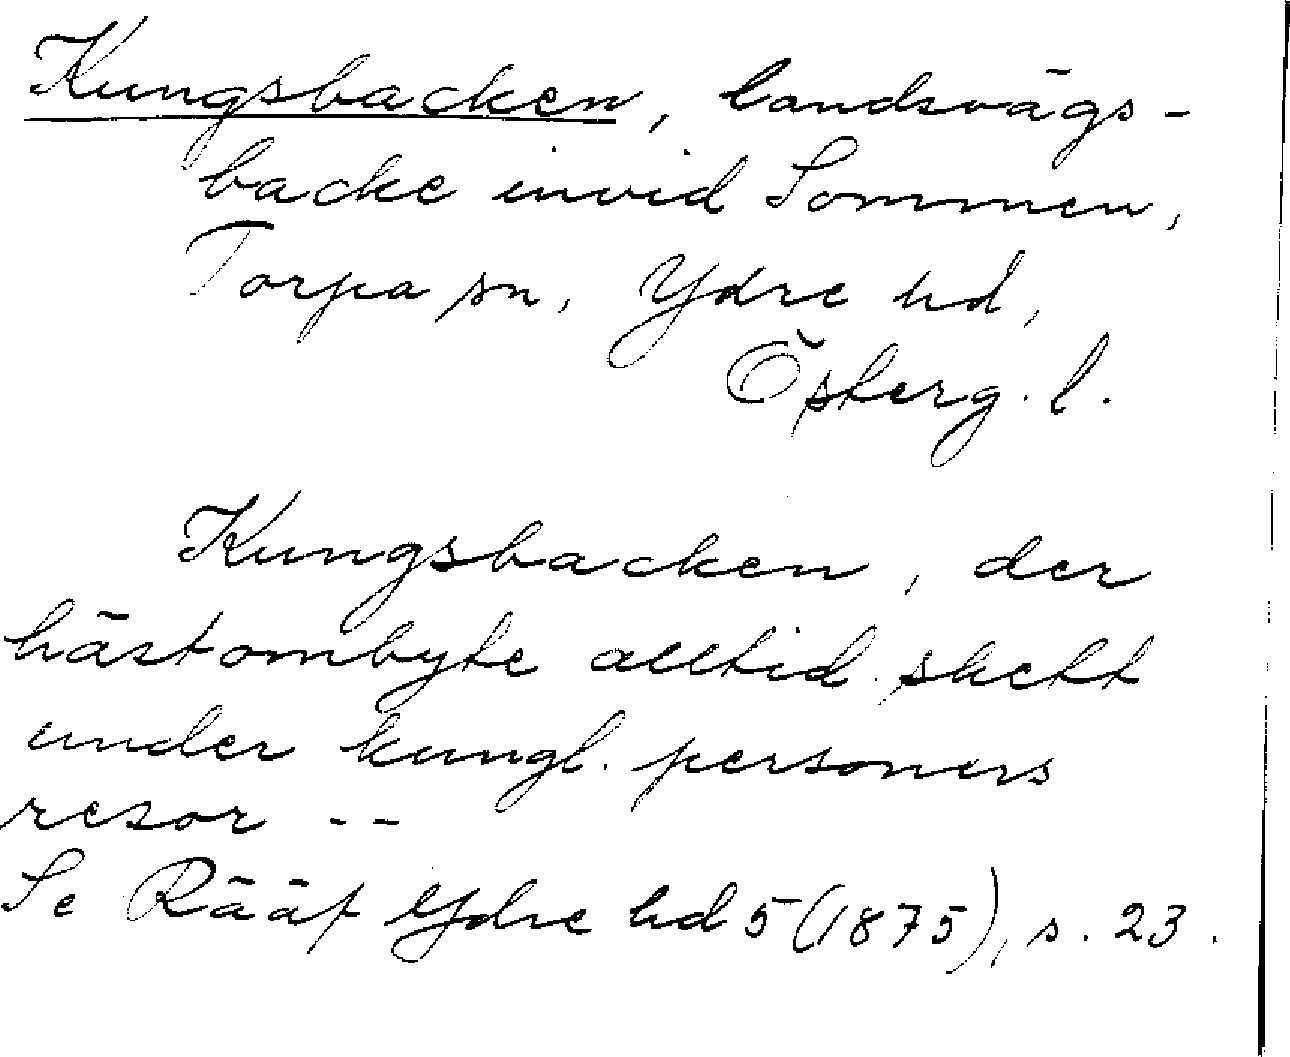 Kungsbacken, landsvägs-
backe invid Sommen,
Torpa sn, Ydre hd,
Österg. l.
Kungsbacken, der
hästombyte alltid skett
under kungl. personers
resor --
Se Rääf Ydre hd 5 (1875), s. 23.